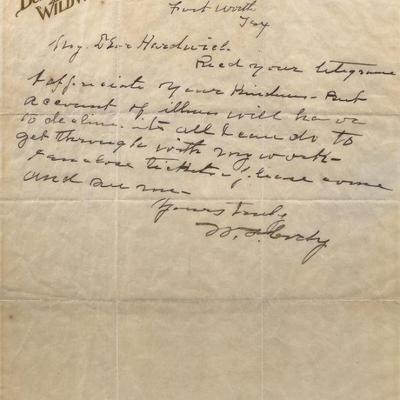 WILDW
Fort Worth
Tex
My Dear Hardwick.
Recd your telegram
I appreciate your kindness - but
account of illness will have
to decline. its all I can do to
get through with my work -
enclose tickets please come
and see me -
Yours truly
W. F. Cody